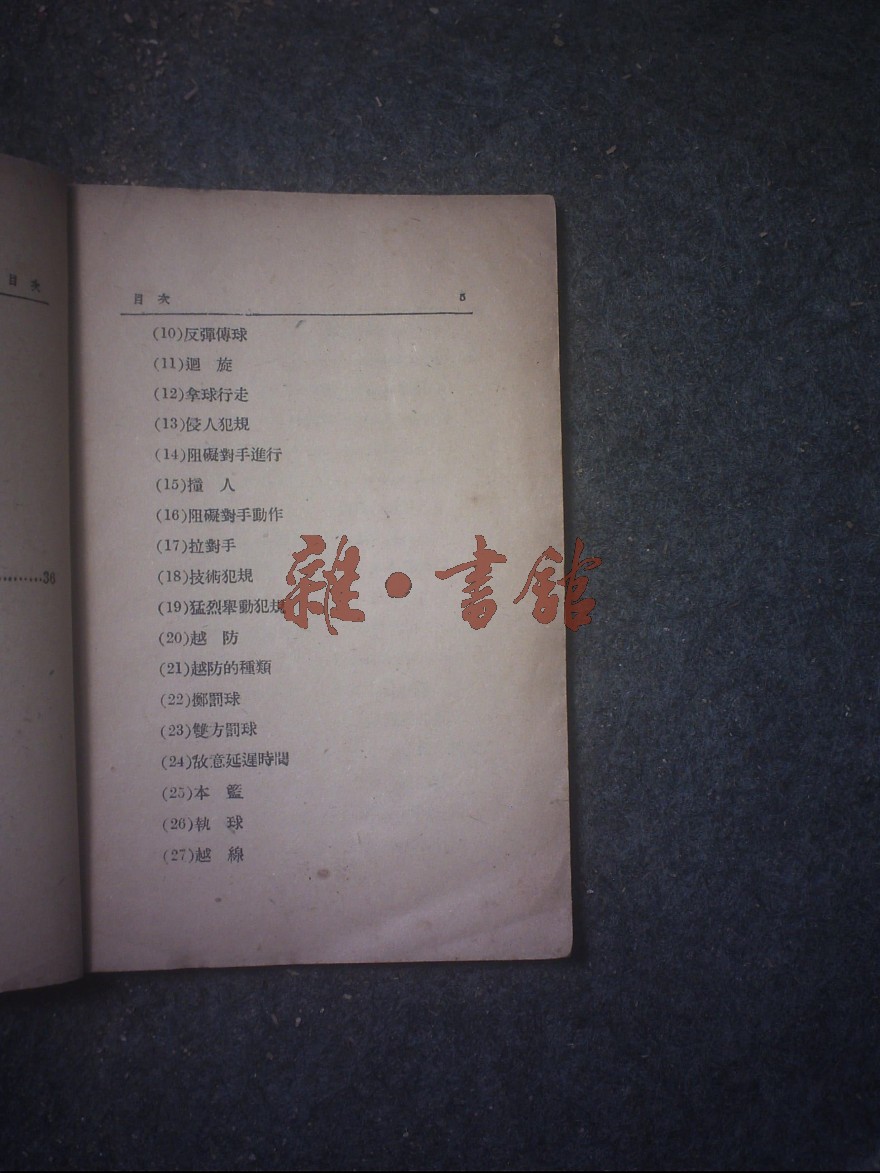 目次
………36
目次 5
(10)反彈傳球
(11)迴 旋
(12)拿球行走
(13)侵人犯規
(14)阻礙對手進行
(15)撞 人
(16)阻礙對手動作
(17)拉對手
(18)技術犯規
(19)猛烈舉動犯規
(20)越 防
(21)越防的種類
(22)擲罰球
(23)雙方罰球
(24)故意延遲時間
(25)本 籃
(26)執 球
(27)越 線
雜·書館